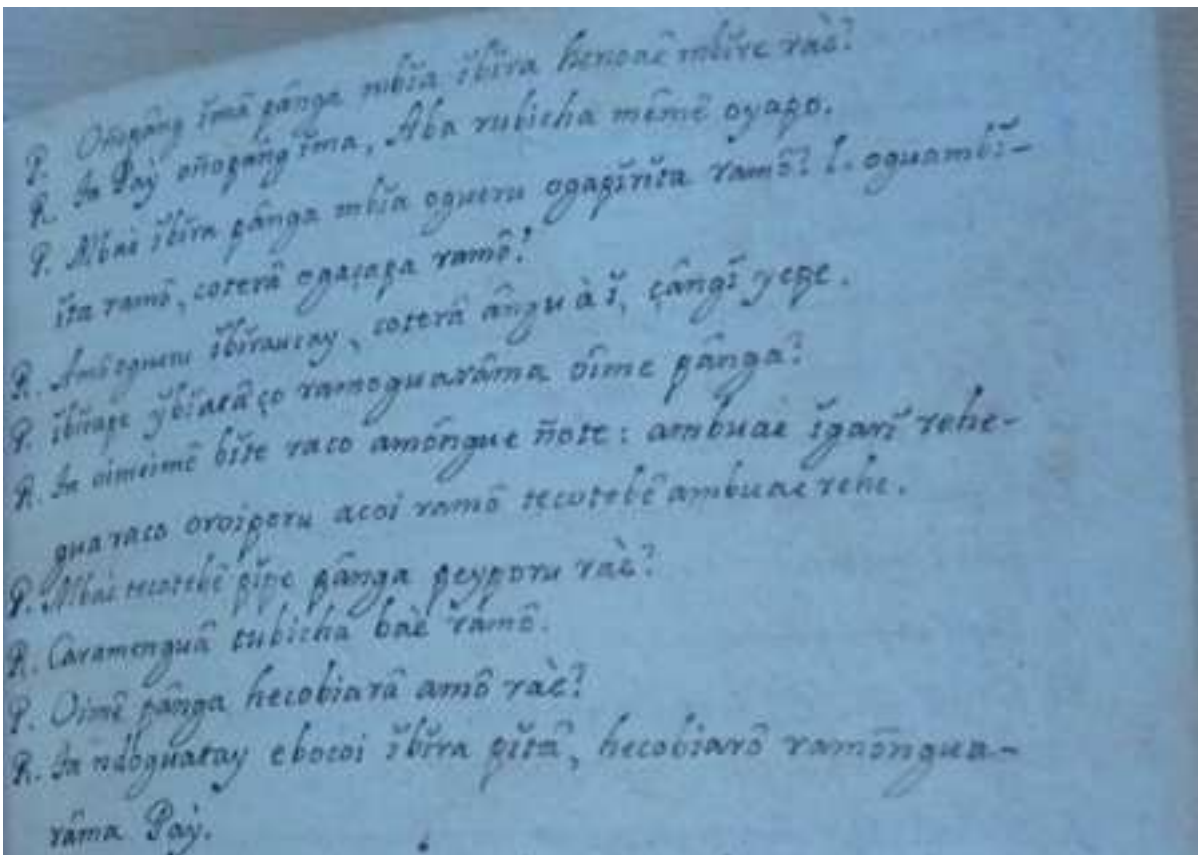 P. Oñopâng ĭmâ pânga mbĭa ĭbĭra henoaê mbĭre raè?
R. Ta Paỳ oñopâng ĭma, Aba rubicha mêmê oyapo.
P. Mbaè ĭbĭra pânga mbĭa ogueru ogapĭrĭta ramô? l. oguambĭ-
ĭta ramô, coterâ ogaçapa ramô?
R. Amô ogueru ĭbĭraucay, coterâ ângu à ĭ, çângĭ yepe.
P. ĭbĭrape ramoguarâma oîme pânga?
R. Ta oimeimê bĭte raco amôngue ñote: ambuae ĭgarĭ rehe-
gua raco oroiporu acoi ramô tecotebê ambuae rehe.
P. Mbaè tecotebê pĭpe pânga peyporu raè?
R. Caramenguâ tubicha baè ramô.
P. Oimê pânga hecobiarâ amô raè?
R. Ta ndoguatay ebocoi ĭbĭra pĭtâ, hecobiarô ramôngua-
râma Paỳ.